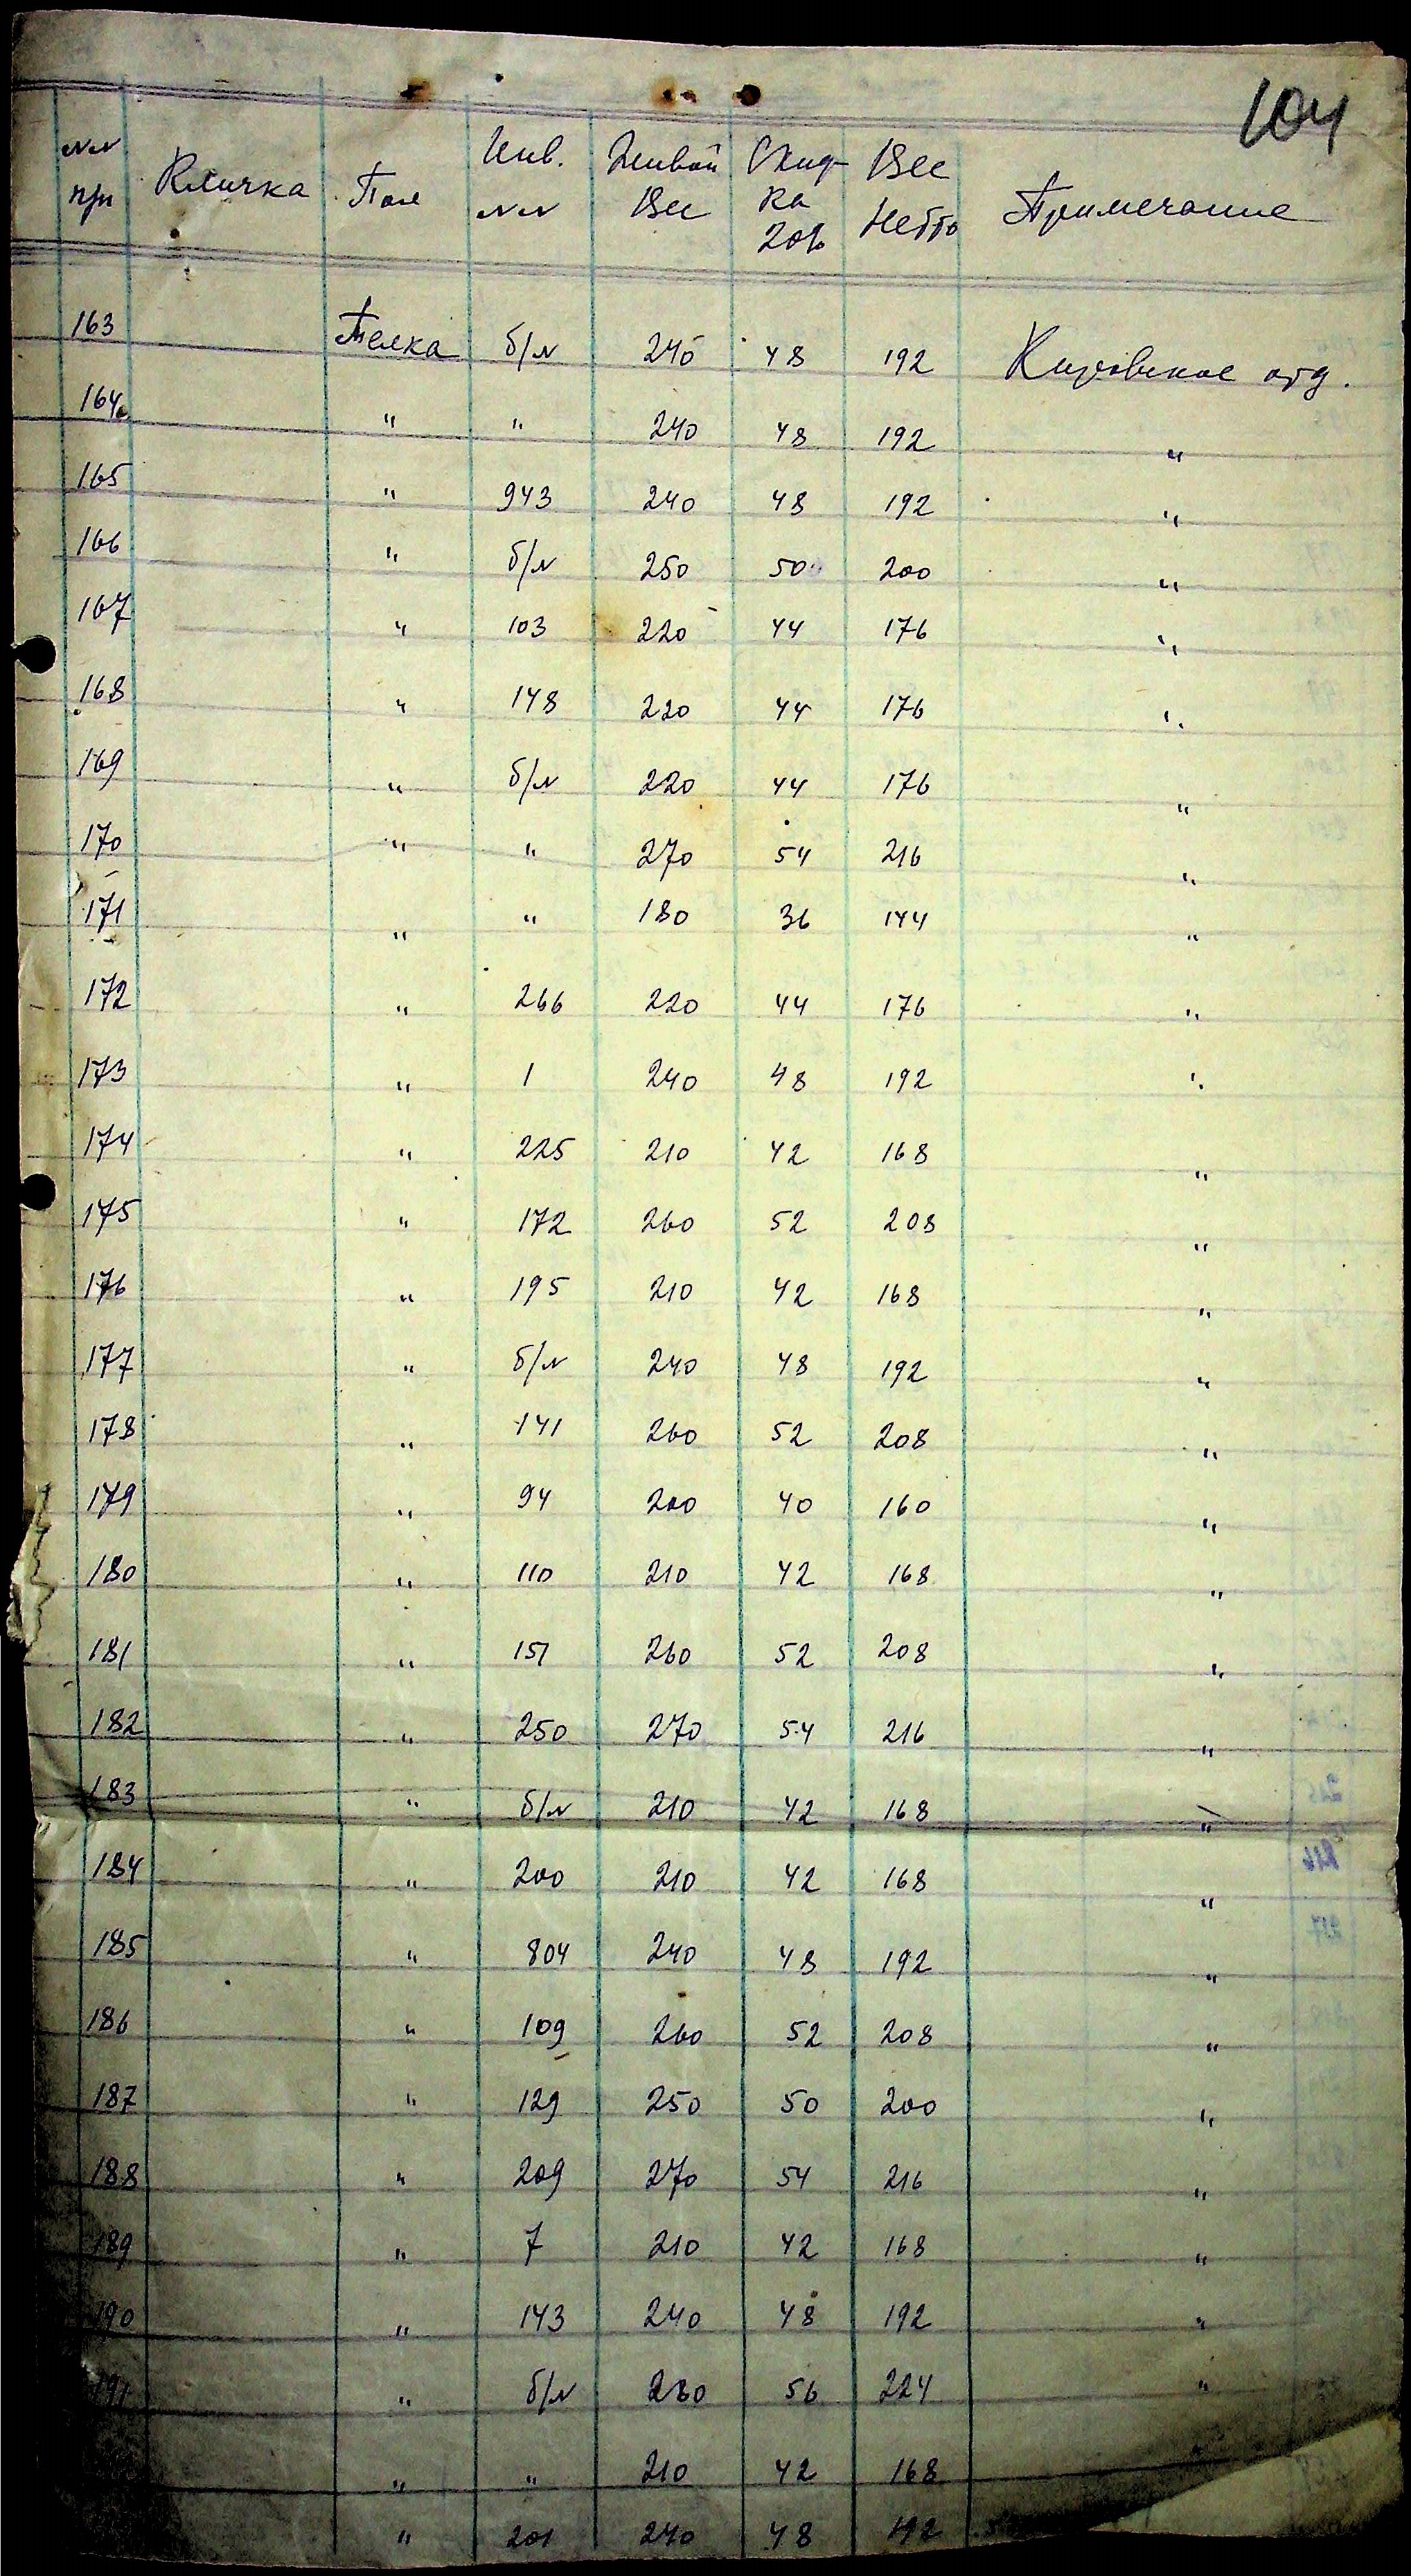 104
№№ пп Кличка Пол Инв. №№ Живой Вес Скид-ка 20% Вес Нетто Примечание
163 Телка б/№ 240 48 192 Кировское отд.
164 " " 240 48 192 "
165 " 943 240 48 192 "
166 " б/№ 250 50 200 "
167 " 103 220 44 176 "
168 " 148 220 44 176 "
169 " б/№ 220 44 176 "
170 " " 270 54 216 "
171 " " 180 36 144 "
172 " 266 220 44 176 "
173 " 1 240 48 192 "
174 " 225 210 42 168 "
175 " 172 260 52 208 "
176 " 195 210 42 168 "
177 " б/№ 240 48 192 "
178 " 141 260 52 208 "
179 " 94 200 40 160 "
180 " 110 210 42 168 "
181 " 151 260 52 208 "
182 " 250 270 54 216 "
183 " б/№ 210 42 168 "
184 " 200 210 42 168 "
185 " 804 240 48 192 "
186 " 109 260 52 208 "
187 " 129 250 50 200 "
188 " 209 270 54 216 "
189 " 7 210 42 168 "
190 " 143 240 48 192 "
191 " б/№ 280 56 224 "
" " 210 42 168
" 201 240 48 192